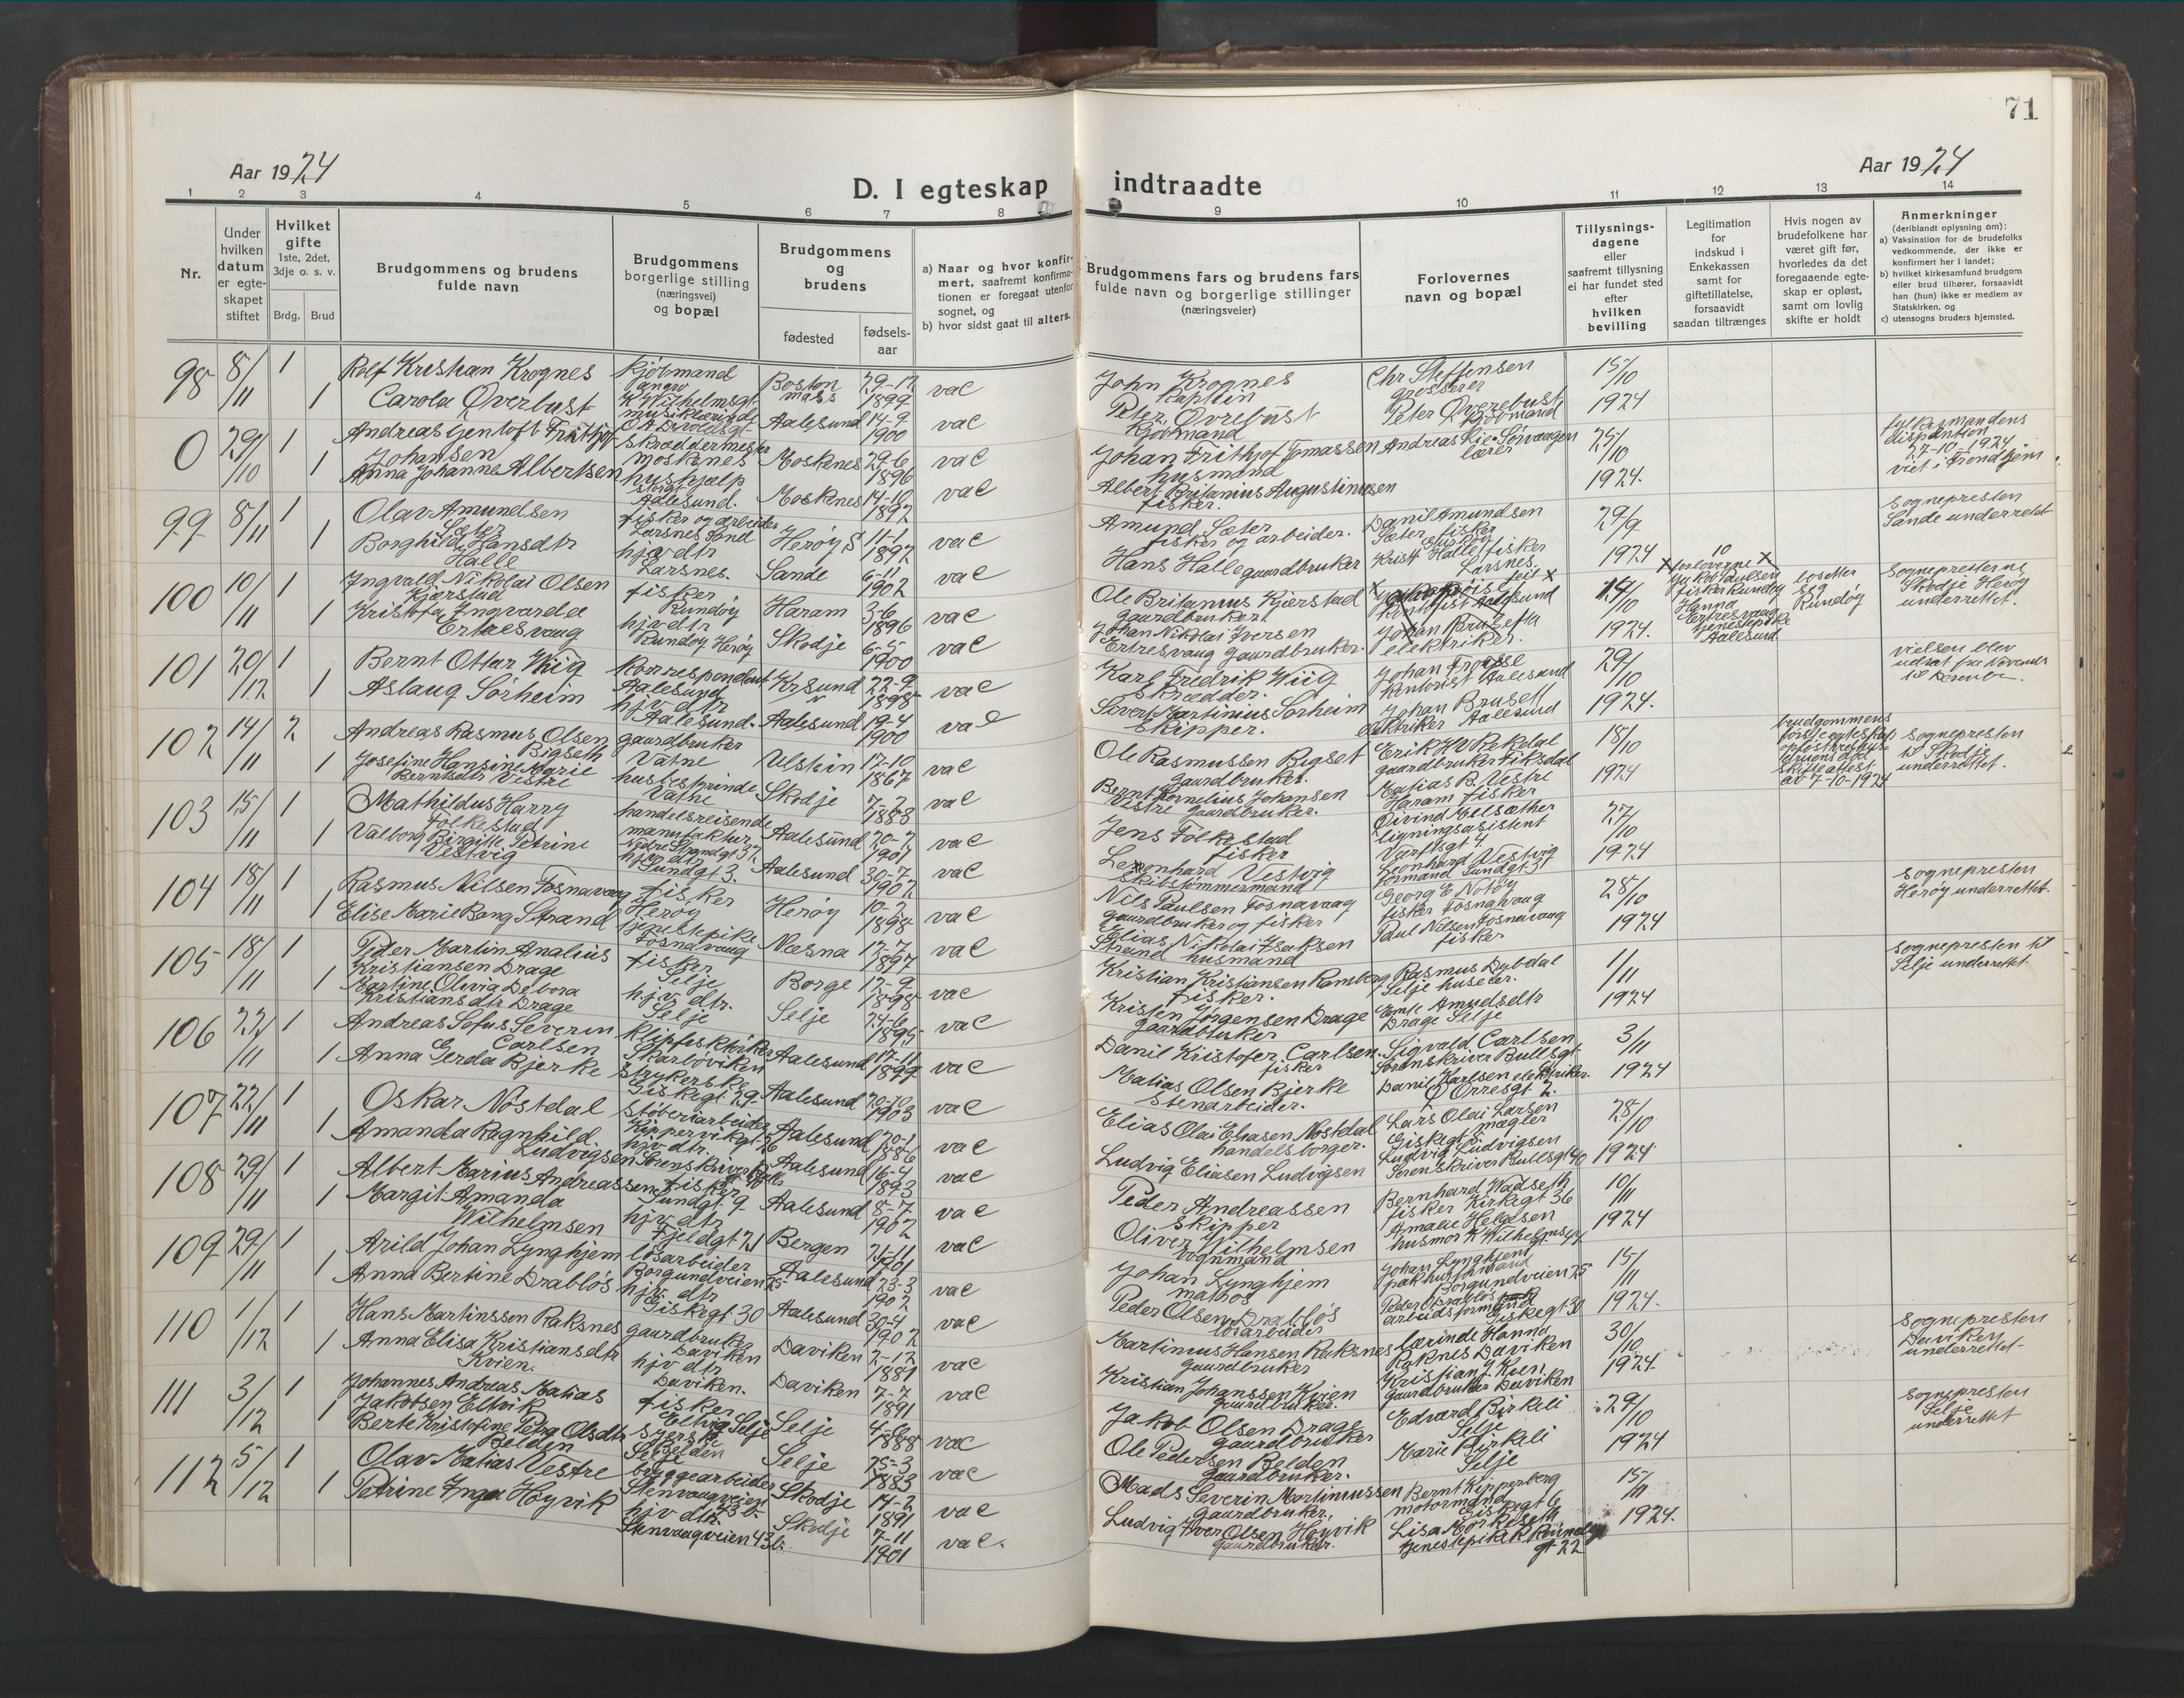 71
Aar 1924
Aar 1924
D. I egteskap indtraadte
1 2 3 4 5 6 7 8 9 10 11 12 13 14
Nr.
Under hvilken datum er egteskapet stiftet
Hvilket gifte 1ste, 2det, 3dje o. s. v.
Brdg. Brud
Brudgommens og brudens fulde navn
Brudgommens borgerlige stilling (næringsvei) og bopæl
Brudgommens og brudens
fødested
fødsels-aar
a) Naar og hvor konfirmert, saafremt konfirmationen er foregaat utenfor sognet, og
b) hvor sidst gaat til alters.
Brudgommens fars og brudens fars fulde navn og borgerlige stillinger (næringsveier)
Forlovernes navn og bopæl
Tillysnings-dagene eller saafremt tillysning ei har fundet sted efter hvilken bevilling
Legitimation for indskud i Enkekassen samt for giftetillatelse, forsaavidt saadan tiltrænges
Hvis nogen av brudefolkene har været gift før, hvorledes da det foregaaende egteskap er opløst, samt om lovlig skifte er holdt
Anmerkninger (deriblandt oplysning om):
a) Vaksination for de brudefolks vedkommende, der ikke er konfirmert her i landet;
b) hvilket kirkesamfund brudgom eller brud tilhører, forsaavidt han (hun) ikke er medlem av Statskirken, og
c) utensogns bruders hjemsted.
98 8/11 1 Rolf Kristian Krognes kjøbmand Boston mass 29-12 1899 vac John Krognes kaptein Chr Steffensen grosserer 15/10 1924
1 Carola Øverbust Aalesund 14-9 1900 vac Peter Øvrebust kjøbmand Peter Øverebust kjøbmand
0 29/10 1 Andreas Gentoft Frithjof Johansen skræddermester Moskenes Moskenes 29-6 1896 vac Johan Frithjof Tomassen husmand Andreas Lie Sørvaagen lærer 25/10 1924. fylkesmandens dispention 27-10-1924 viet i Trondhjem
1 Anna Johanne Albertsen hushjælp Aalesund. Moskenes 14-10 1897 vac Albert Britanius Augustinusen fisker.
99 8/11 1 Olav Amundsen Sæter fisker og arbeider Larsnes Sand Herøy S 11-1 1897 vac Amund Sæter fisker og arbeider. Danil Amundsen Sæter fisker 29/9 1924 sognepresten Sande underrettet
1 Borghild Hansdtr Halle hjv dtr Larsnes. Sande 6-11 1902 vac Hans Halle gaardbruker Krist Halle fisker Larsnes.
100 10/11 1 Ingvald Nikolai Olsen Kjærstad fisker Rundøy Haram 3-6 1896 vac Ole Britanius Kjerstad gaardbruker. 24/10 1924. forloverne Jakob Paulsen fisker Rundøy Hanna Ertresvaag tjenestepike Aalesund bosetter sig Rundøy sognepresterne Skodje Herøy underrettet.
1 Kristofa Ingvarda Ertresvaag hjv dtr Rundøy Herøy Skodje 6-5- 1900 vac Johan Nikolai Iversen Ertresvaag gaardbruker. Johan Brusett elektriker.
101 20/12 1 Bernt Ottar Wiig korrespondent Aalesund Krsund N 22-9 1898 vac Karl Fredrik Wiig skrædder. Johan Frosse kontorist Aalesund 29/10 1924. vielsen blev utsat fra November til December.
1 Aslaug Sørheim hjv dtr Aalesund. Aalesund 19-4 1900 vac Sivert Martinius Sørheim skipper. Johan Brusett elektriker Aalesund
102 14/11 2 Andreas Rasmus Olsen Bigseth gaardbruker Vatne Ulstein 17-10 1867 vac Ole Rasmussen Bigset gaardbruker. Erik H V Rekdal gaardbruker Fiksdal 18/10 1924 brudgommens første egteskap opløst ved hustruens død skifteattest av 7-10-1924 sognepresten til Skodje underrettet.
1 Josefine Hansine Marie Berntsdtr Vestre husbestyrinde Vatne Skodje 7-2 1883 vac Bernt Kornelius Johansen Vestre gaardbruker. Matias B. Vestre Haram fisker
103 15/11 1 Mathildus Harry Folkestad handelsreisende manufaktur Nedre Strandgt 37 Aalesund 20-2 1901 vac Jens Folkestad fisker Øivind Melsæther ligningsasistent Værftsgt 4. 27/10 1924
1 Valborg Birgitte Petrine Vestvig hjv dtr Sundgt 3. Aalesund 30-7 1902 vac Leonhard Vestvig skibstømmermand Leonhard Vestvig formand Sundgt 31
104 18/11 1 Rasmus Nilsen Fosnavaag fisker Herøy Herøy 10-2 1898 vac Nils Paulsen Fosnavaag gaardbruker og fisker Georg E Notøy fisker Fosnavaag 28/10 1924 sognepresten Herøy underrettet.
1 Elise Marie Bang Strand tjenestepike Fosnavaag Næsna 17-7 1897 vac Elias Nikolai Isaksen Strand husmand Paul Nilsen Fosnavaag fisker
105 18/11 1 Peder Martin Analius Kristiansen Drage fisker Selje Borge 12-9 1898 vac Kristian Kristiansen Ramberg fisker. Rasmus Dybedal Selje huseier. 1/11 1924 sognepresten til Selje underrettet.
1 Martine Olivia Debora Kristiansdtr Drage hjv dtr. Selje Selje 24-6 1895 vac Kristen Jørgensen Drage gaardbruker Emte Amudsdtr Drage Selje
106 22/11 1 Andreas Sofus Severin Carlsen klipfisktørker Skarbøviken Aalesund 17-11 1899 vac Danil Kristofer Carlsen. fisker Sigvald Carlsen Sorenskriver Bullsgt 3/11 1924
1 Anna Gerda Bjerke strykerske Giskegt 29- Aalesund 20-10 1903 vac Matias Olsen Bjerke stenarbeider. Danil Karlsen elektriker. Ø Ørresgt 2.
107 22/11 1 Oskar Nøstdal støberiarbeider Kippervikgt 16 Aalesund 20-1 1886 vac Elias Olai Eliasen Nøstdal handelsborger. Lars Olai Larsen mægler 28/10 1924
1 Amanda Ragnhild Ludvigsen hjv dtr. Sorenskriver Bullsgt Aalesund 16-4 1893 vac Ludvig Eliasen Ludvigsen Ludvig Ludvigsen Sorenskriver Bullsgt 40
108 29/11 1 Albert Marius Andreassen fisker Sundgt 9 Aalesund 8-7 1902 vac Peder Andreassen skipper Bernhard Wadseth fisker Kirkegt 36 10/11 1924
1 Margit Amanda Wilhelmsen hjv dtr Fjeldgt 21 vac Oliver Wilhelmsen vognmand Amalie Helgesen husmor K Wilhelmsgt
109 29/11 1 Arild Johan Lynghjem lösarbeider Borgundveien 25 Bergen 21-11 1901 vac Johan Lynghjem matros Johan Lynghjem pakhusformand Borgundveien 25 15/11 1924.
1 Anna Bertine Drabløs hjv dtr Giskegt 30 Aalesund 23-3 1902 vac Peder Olsen Drabløs lösarbeider Peder Drabløs arbeidsformand Giskegt 30
110 1/12 1 Hans Martinssen Raksnes gaardbruker Daviken Daviken 2-12 1881 vac Martinus Hansen Raksnes gaardbruker lærinde Hanna Raknes Daviken 30/10 1924. sognepresten Daviken underrettet-
1 Anna Elisa Kristiansdtr Kvien. hjv dtr Daviken. Daviken 7-7 1891 vac Kristian Johanssen Kvien gaardbruker. Kristian J. Kvien gaardbruker Daviken
111 3/12 1 Johannes Andreas Matias Jakobsen Eltvik fisker Eltvig Selje Selje 4-6 1888 vac Jakob Olsen Drage gaardbruker Edvard Birkeli Selje 29/10 1924 sognepresten Selje underrettet
1 Berte Kristofine Petra Olsdtr Belden Selje 25-3 1883 vac Ole Pedersen Belden gaardbruker. Marie Birkeli Selje
112 5/12 1 Olav Matias Vestre byggearbeider Stenvaagveien 43 b. Skodje 14-2 1891 vac Mads Severin Martinussen gaardbruker, Bernt Kipperberg motormand Giskegt 6 15/11 1924.
1 Petrine Inga Høyvik hjv dtr. Stenvaagveien 43 b. Skodje 7-11 1901 vac. Ludvig Iver Olsen Høyvik gaardbruker. Lisa Mørkeseth tjenestepike gt 22